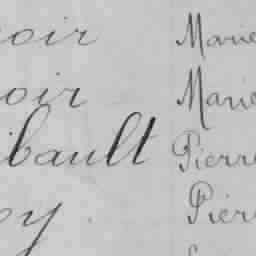 oir Marie
oir Marie
ibault Pierre
ey. Pierr